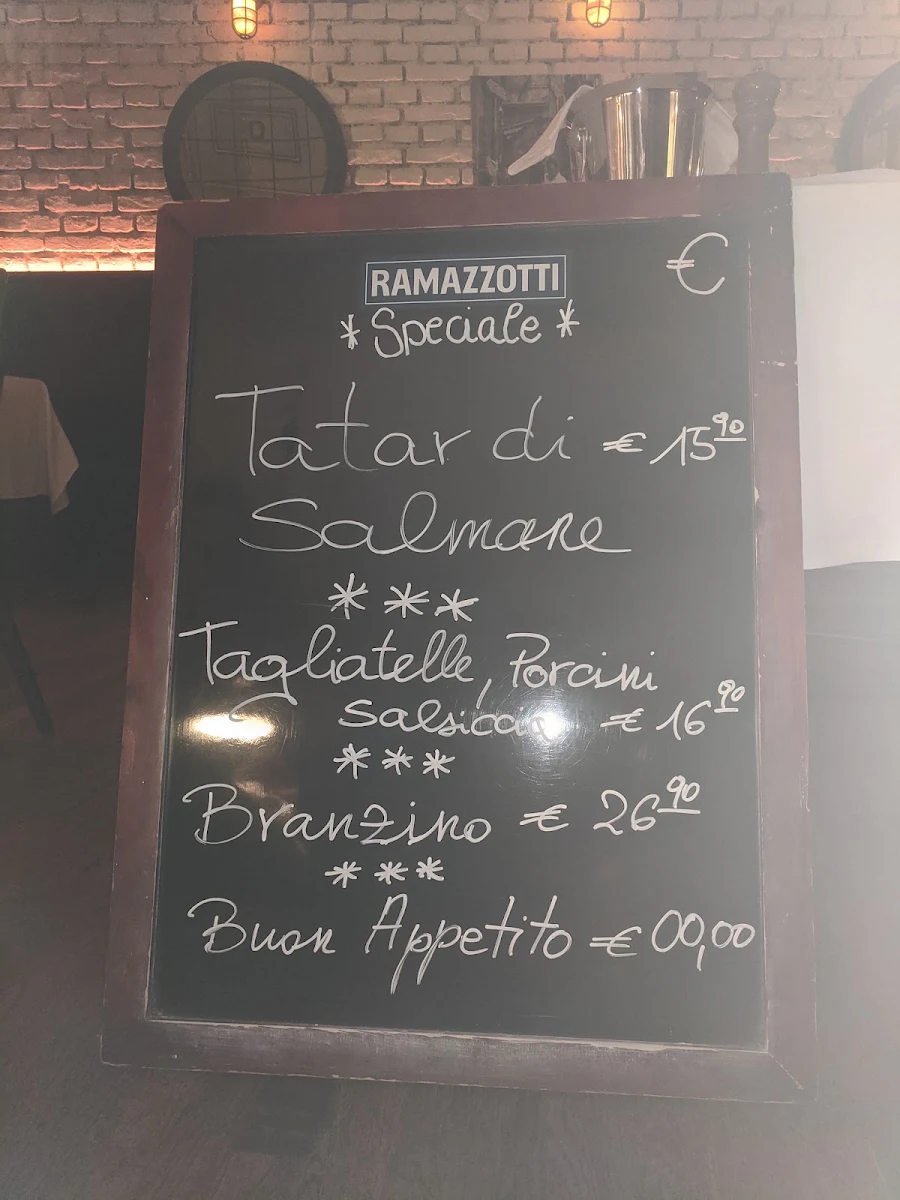 €
RAMAZZOTTI
* Speciale *
Tatar di € 15 90
Salmone
***
Tagliatelle, Porcini
Salsiccia € 16 90
***
Branzino € 26 90
***
Buon Appetito € 00,00